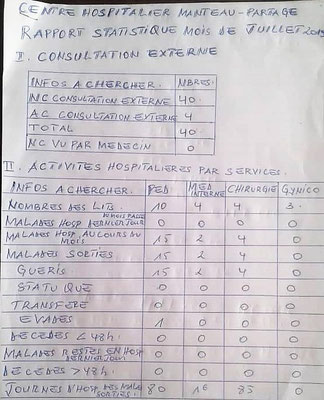 CENTRE HOSPITALIER MANTEAU-PARTAGE
RAPPORT STATISTIQUE MOIS DE JUILLET 2019
I. CONSULTATION EXTERNE
INFOS A CHERCHER. NBRES.
NC CONSULTATION EXTERNE 40.
AC CONSULTATION EXTERNE 4
TOTAL 40.
NC VU PAR MEDECIN 0
II. ACTIVITES HOSPITALIERES PAR SERVICES.
INFOS A CHERCHER. PED MED INTERNE CHIRURGIE GYNICO
NOMBRES DES LITS. 10 4 4 3.
MALADES HOSP DERNIER JOUR DU MOIS PASSE 0 0 0 0
MALADES HOSP AU COURS DU MOIS 15 2 4 0
MALADES SORTIES 15 2 4 0
GUERIS 15 2 4 0
STATU QUE 0 0 0 0
TRANSFERE 0 0 0 0
EVADES 1 0 0 0
DECEDES < 48H. 0 0 0 0
MALADES RESTES EN HOSP DERNIER JOUR 0 0 0 0
DECEDES > 48H. 0 0 0 0
JOURNES D'HOSP DES MALADES SORTIES. 80 16 85 0